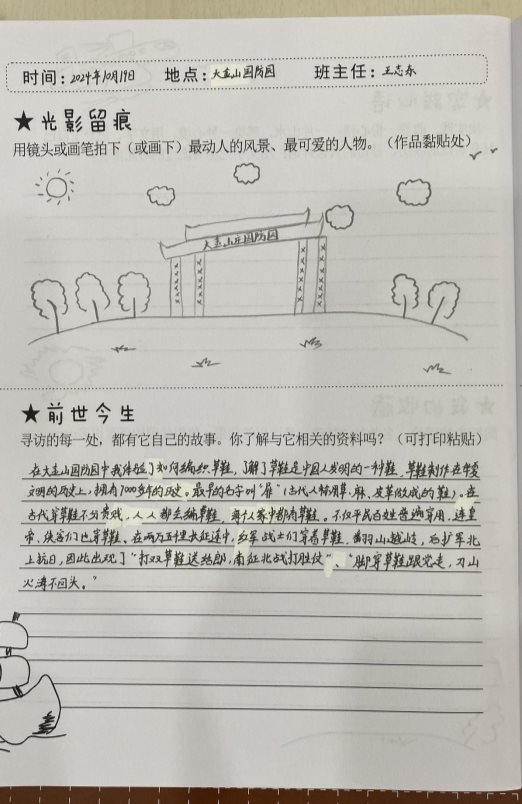 时间：2024年10月19日 地点：大金山国防园 班主任：王志东
★光影留痕
用镜头或画笔拍下（或画下）最动人的风景、最可爱的人物。（作品黏贴处）
大金山庄国防园
★前世今生
寻访的每一处，都有它自己的故事。你了解与它相关的资料吗？（可打印粘贴）
在大金山国防园中我体验了如何编织草鞋，了解了草鞋是中国人发明的一种鞋，草鞋制作在华夏
文明的历史上，拥有7000多年的历史。最早的名字叫“屝”（古代人特用草、麻、皮革做成的鞋）。在
古代穿草鞋不分贵贱，人人都会编草鞋，每个人家中都有草鞋。不仅平民百姓普遍穿用，连皇
帝、侠客们也穿草鞋。在两万五千里长征途中，红军战士们穿着草鞋，翻羽山越岐，
上抗日，因此出现了“打双草鞋送红郎，南征北战打胜仗”、“脚穿草鞋跟党走，刀山
火海不回头。”